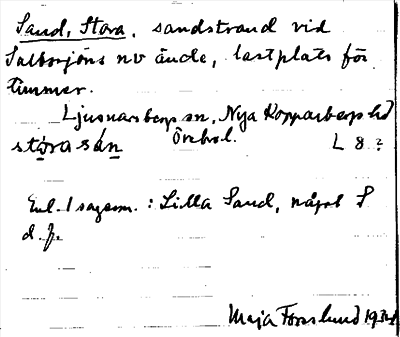 Sand, Stora, sandstrand vid
Salbosjöns nv ände, lastplats för
timmer.
Ljusnarsbergs sn, Nya Kopparbergs hd
stórasán Örebro l. L 8 ?
Enl. 1 sagesm.: Lilla Sand, något S
d. f.
Maja Forslund 1934